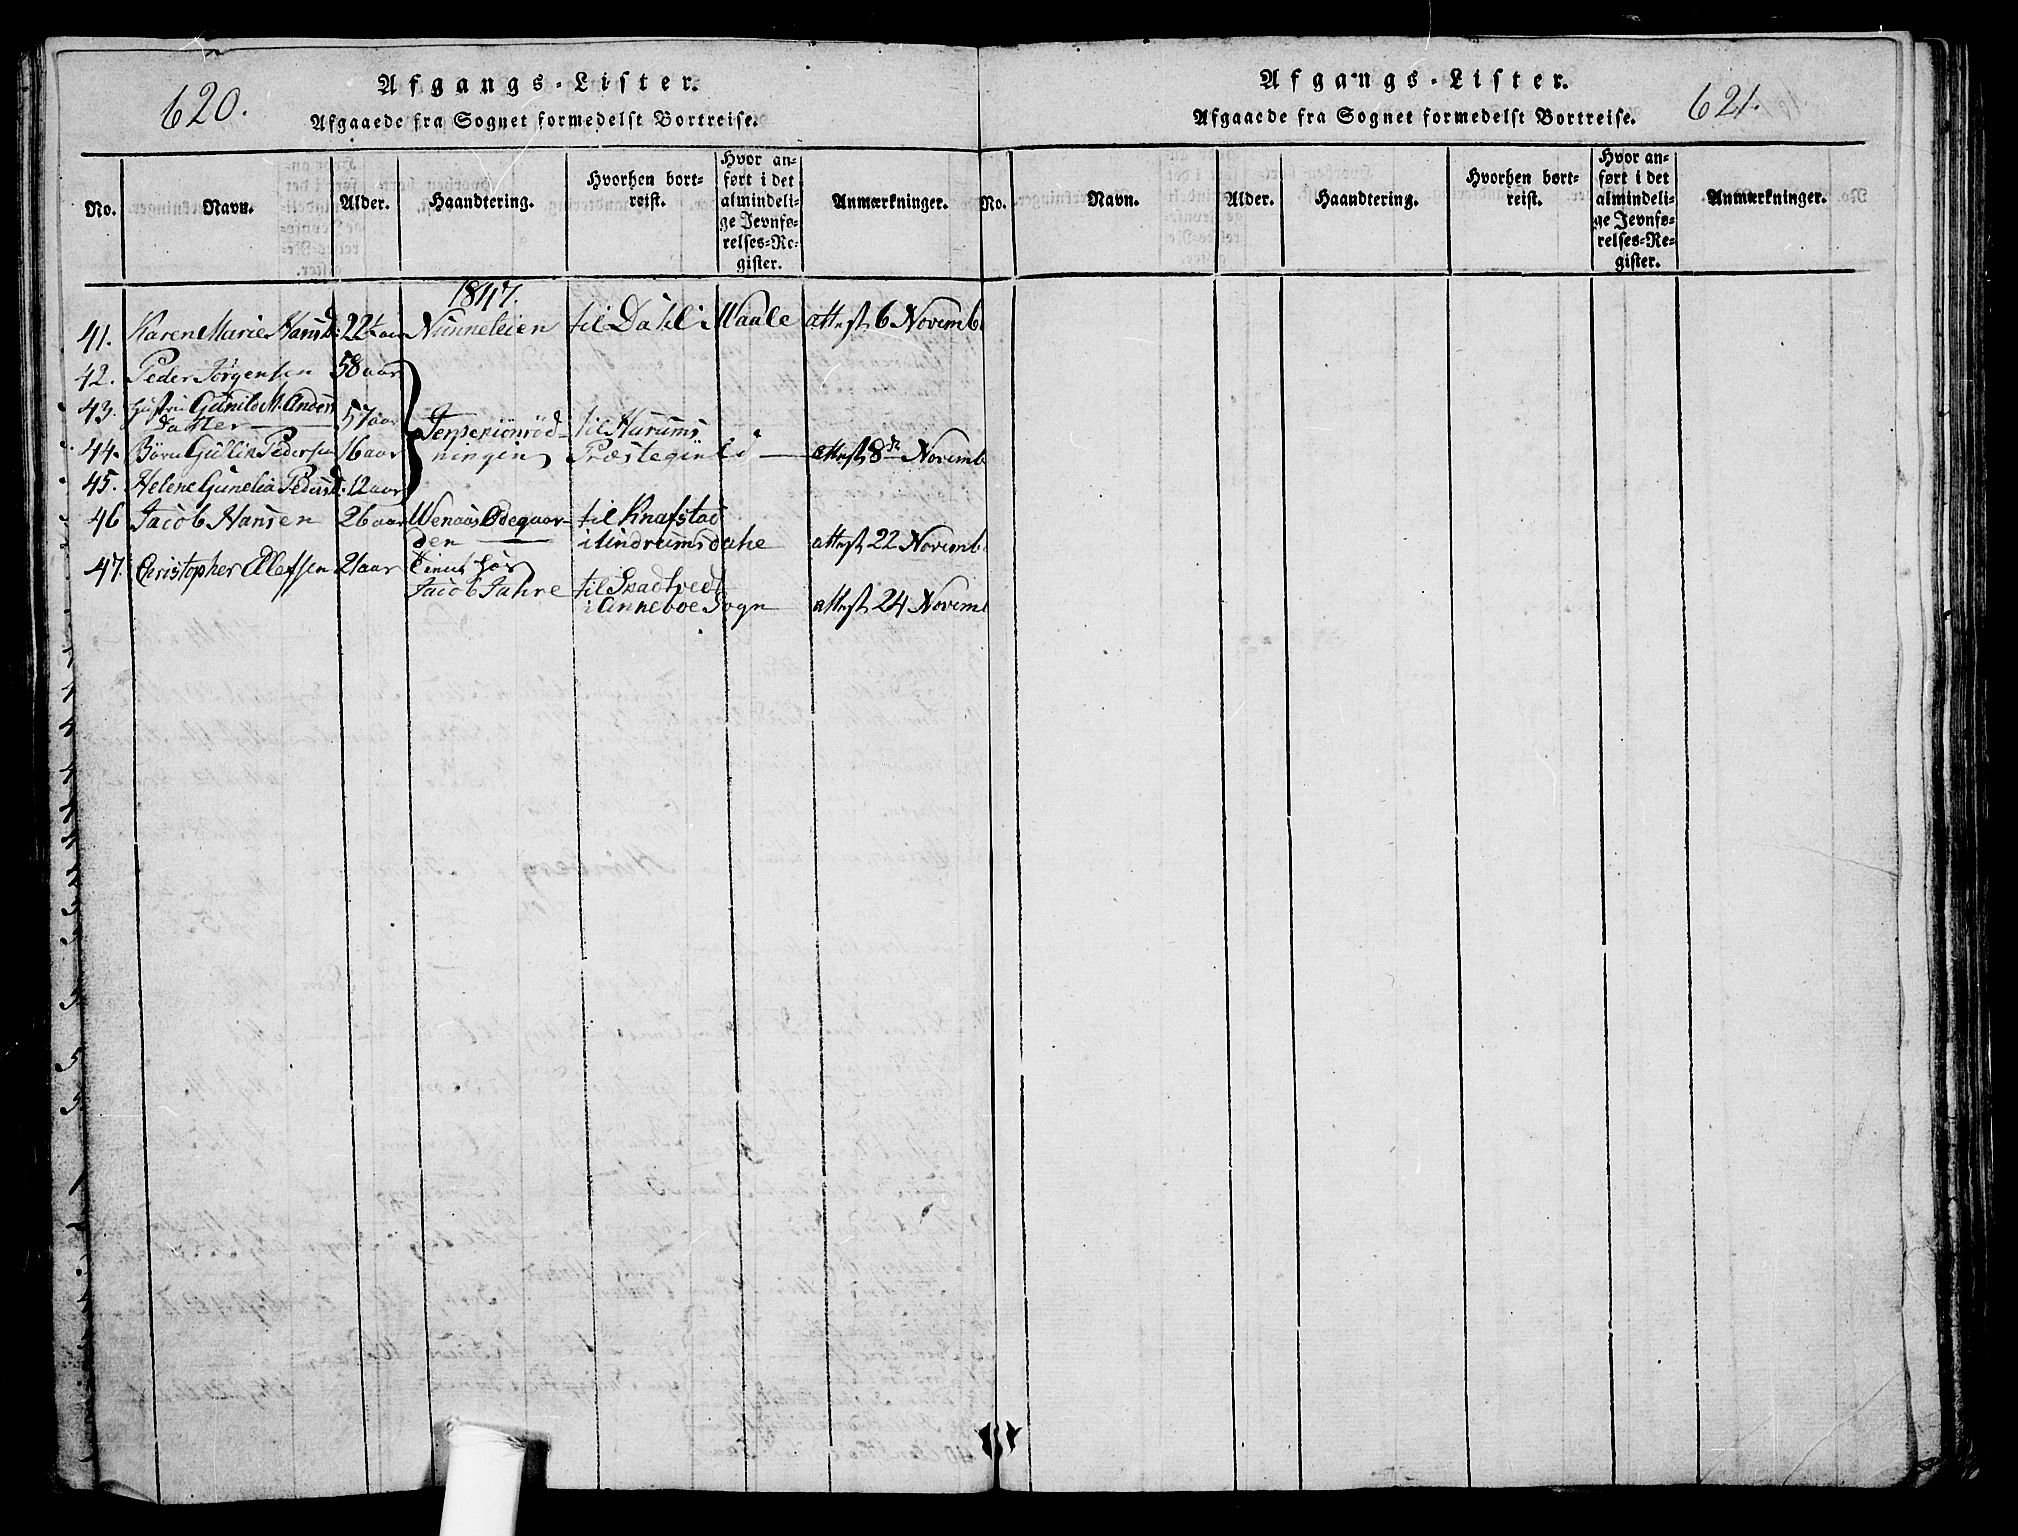 620.
Afgangs-Lister.
Afgaaede fra Sognet formedelst Bortreise.
No. Navn. Alder. Haandtering. Hvorhen bortreist. Hvor anført i det almindelige Jevnførelses-Register. Anmærkninger.
1847.
41. Karen Marie Hansd: 22½ aar Nunneleien til Dahl i Waale attest 6 Novemb
42. Peder Jörgensen 58 aar
43. Hustru Gunild M. Anders
datter 57 aar
til Hurums
44. Börn Gullik Pedersen 16 aar ningen Præstegield attest 8de Novemb
45. Helene Gunelia Pedersd. 12 aar
46 Jacob Hansen 26 aar Wenaas Ödegaar- til Knafstad
den i Undrumsdahe attest 22 Novemb
47. Christopher Ollefsen 21 aar
Jacob Jahre til
i Anneboe Sogn attest 24 Novemb
Afgangs-Lister.
621.
Afgaaede fra Sognet formedelst Bortreise.
No. Navn. Alder. Haandtering. Hvorhen bortreist. Hvor anført i det almindelige Jevnførelses-Register. Anmærkninger.